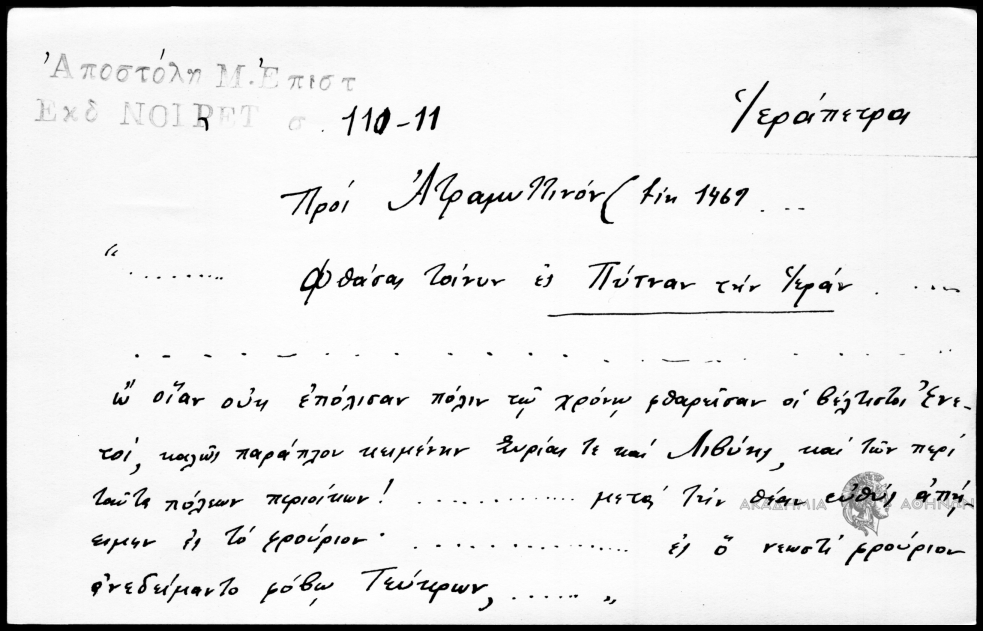 Ἀποστόλη Μ. Ἐπιστ
Εκδ NOIRET σ. 110-11
Ἱεράπετρα
Πρός Ἀτραμυττινόν (ἔτη 1469 ...
“ ......... Φθάσας τοίνυν ἐς Πύτναν τὴν Ἱεράν . ....
ὢ οἵαν οὐκ ἐπόλισαν πόλιν τῷ χρόνῳ φθαρεῖσαν οἱ βέλτιστοι Ἐνε-
τοί, καλῶς παράπλου κειμένην Συρίας τε καί Λιβύης, καί τῶν περί
ταῦτα πόλεων περιοίκων! ............... μετά τήν θέαν εὐθύς ἀπή-
ειμεν ἐς τό φρούριον· ................ ἐς ὅ νεωστί φρούριον
ἀνεδείμαντο φόβῳ Τεύκρων, ...... „
ΑΚΑΔΗΜΙΑ ΑΘΗΝΩΝ